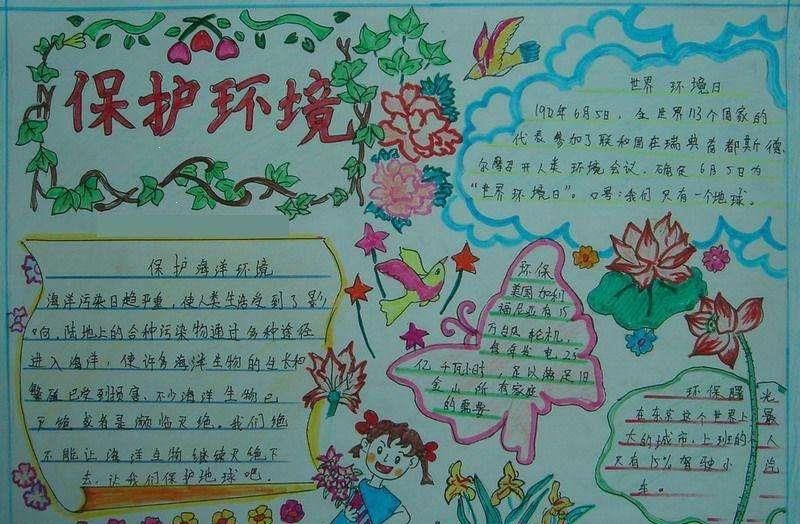 保护环境
世界环境日
1972年6月5日，在世界113个国家的
代表参加了联和国在瑞典首都斯德
尔摩召开人类环境会议。确定6月5日为
“世界环境日”。口号：我们只有一个地球。
保护海洋环境
海洋污染日趋严重，使人类生活受到了影
响，陆地上的各种污染物通过多种途径
进入海洋，使许多海洋生物的生长和
繁殖已受到损害、不少海洋生物已
灭绝或者是濒临灭绝。我们绝
不能让海洋生物继续灭绝下
去，让我们保护地球吧。
环保
美国加利
福尼亚有15
万台风轮机，
每年发电25
亿千瓦小时，足以满足旧
金山所有家庭
的需要
环保曙光
在东京这个世界上最
大的城市，上班的人
只有15%驾驶小
车。